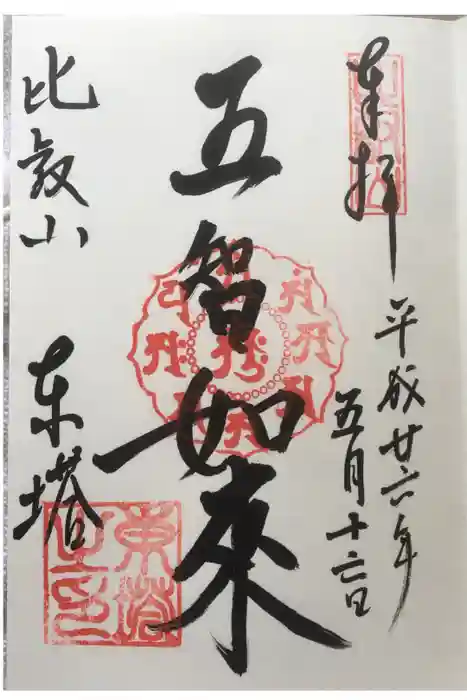 奉拝
平成廿六年
五月十六日
五智如來
比叡山
东塔
東塔
之印